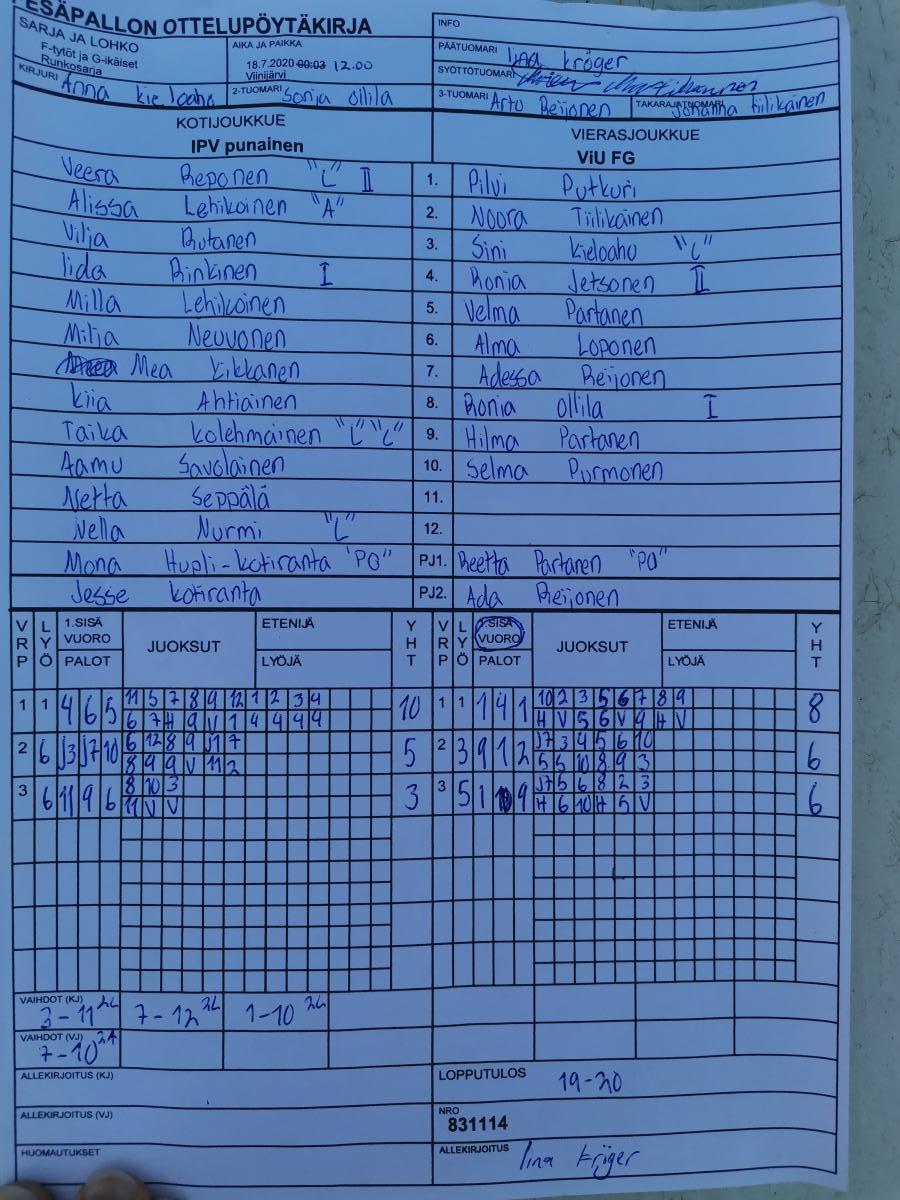 PESÄPALLON OTTELUPÖYTÄKIRJA
SARJA JA LOHKO
F-tytöt ja G-ikäiset
Runkosarja
AIKA JA PAIKKA
18.7.2020 00:03 12.00
Viinijärvi
INFO
PÄÄTUOMARI Iina Kröger
SYÖTTÖTUOMARI
KIRJURI Anna Kieloaho
2-TUOMARI Sonja Ollila
3-TUOMARI Arto Reijonen
TAKARAJATUOMARI Johanna Tiilikainen
KOTIJOUKKUE
IPV punainen
VIERASJOUKKUE
ViU FG
Veera Reponen "L" II 1. Pilvi Putkuri
Alissa Lehikoinen "A" 2. Noora Tiilikainen
Vilja Rutanen 3. Sini Kieloaho "L"
Iida Rinkinen I 4. Ronja Jetsonen II
Milla Lehikoinen 5. Velma Partanen
Milja Neuvonen 6. Alma Loponen
Mea Kikkanen 7. Adessa Reijonen
Kiia Ahtiainen 8. Ronja Ollila I
Taika Kolehmainen "L" "L" 9. Hilma Partanen
Aamu Savolainen 10. Selma Purmonen
Netta Seppälä 11.
Nella Nurmi "L" 12.
Mona Hupli-Kotiranta "PO" PJ1. Reetta Partanen "PO"
Jesse Kotiranta PJ2. Ada Reijonen
VRP LYÖ 1.SISÄ VUORO PALOT JUOKSUT ETENIJÄ LYÖJÄ YHT VRP LYÖ 1.SISÄ VUORO PALOT JUOKSUT ETENIJÄ LYÖJÄ YHT
1 1 4 6 5 11 5 7 8 9 12 1 2 3 4 10 1 1 1 4 1 10 2 3 5 6 7 8 9 8
6 7 H 9 V 1 4 4 4 4 H V 5 6 V 9 H V
2 6 J3 J7 10 6 12 8 9 J1 7 5 2 3 9 1 2 J7 3 4 5 6 10 6
8 9 9 V 11 2 5 5 10 8 9 3
3 6 11 9 6 8 10 3 3 3 5 1 10 9 J7 5 6 8 2 3 6
11 V V H 6 10 H 5 V
VAIHDOT (KJ)
3-11 2L 7-12 2L 1-10 2L
VAIHDOT (VJ)
7-10 2A
ALLEKIRJOITUS (KJ)
LOPPUTULOS 19-20
ALLEKIRJOITUS (VJ)
NRO
831114
HUOMAUTUKSET
ALLEKIRJOITUS Iina Kröger